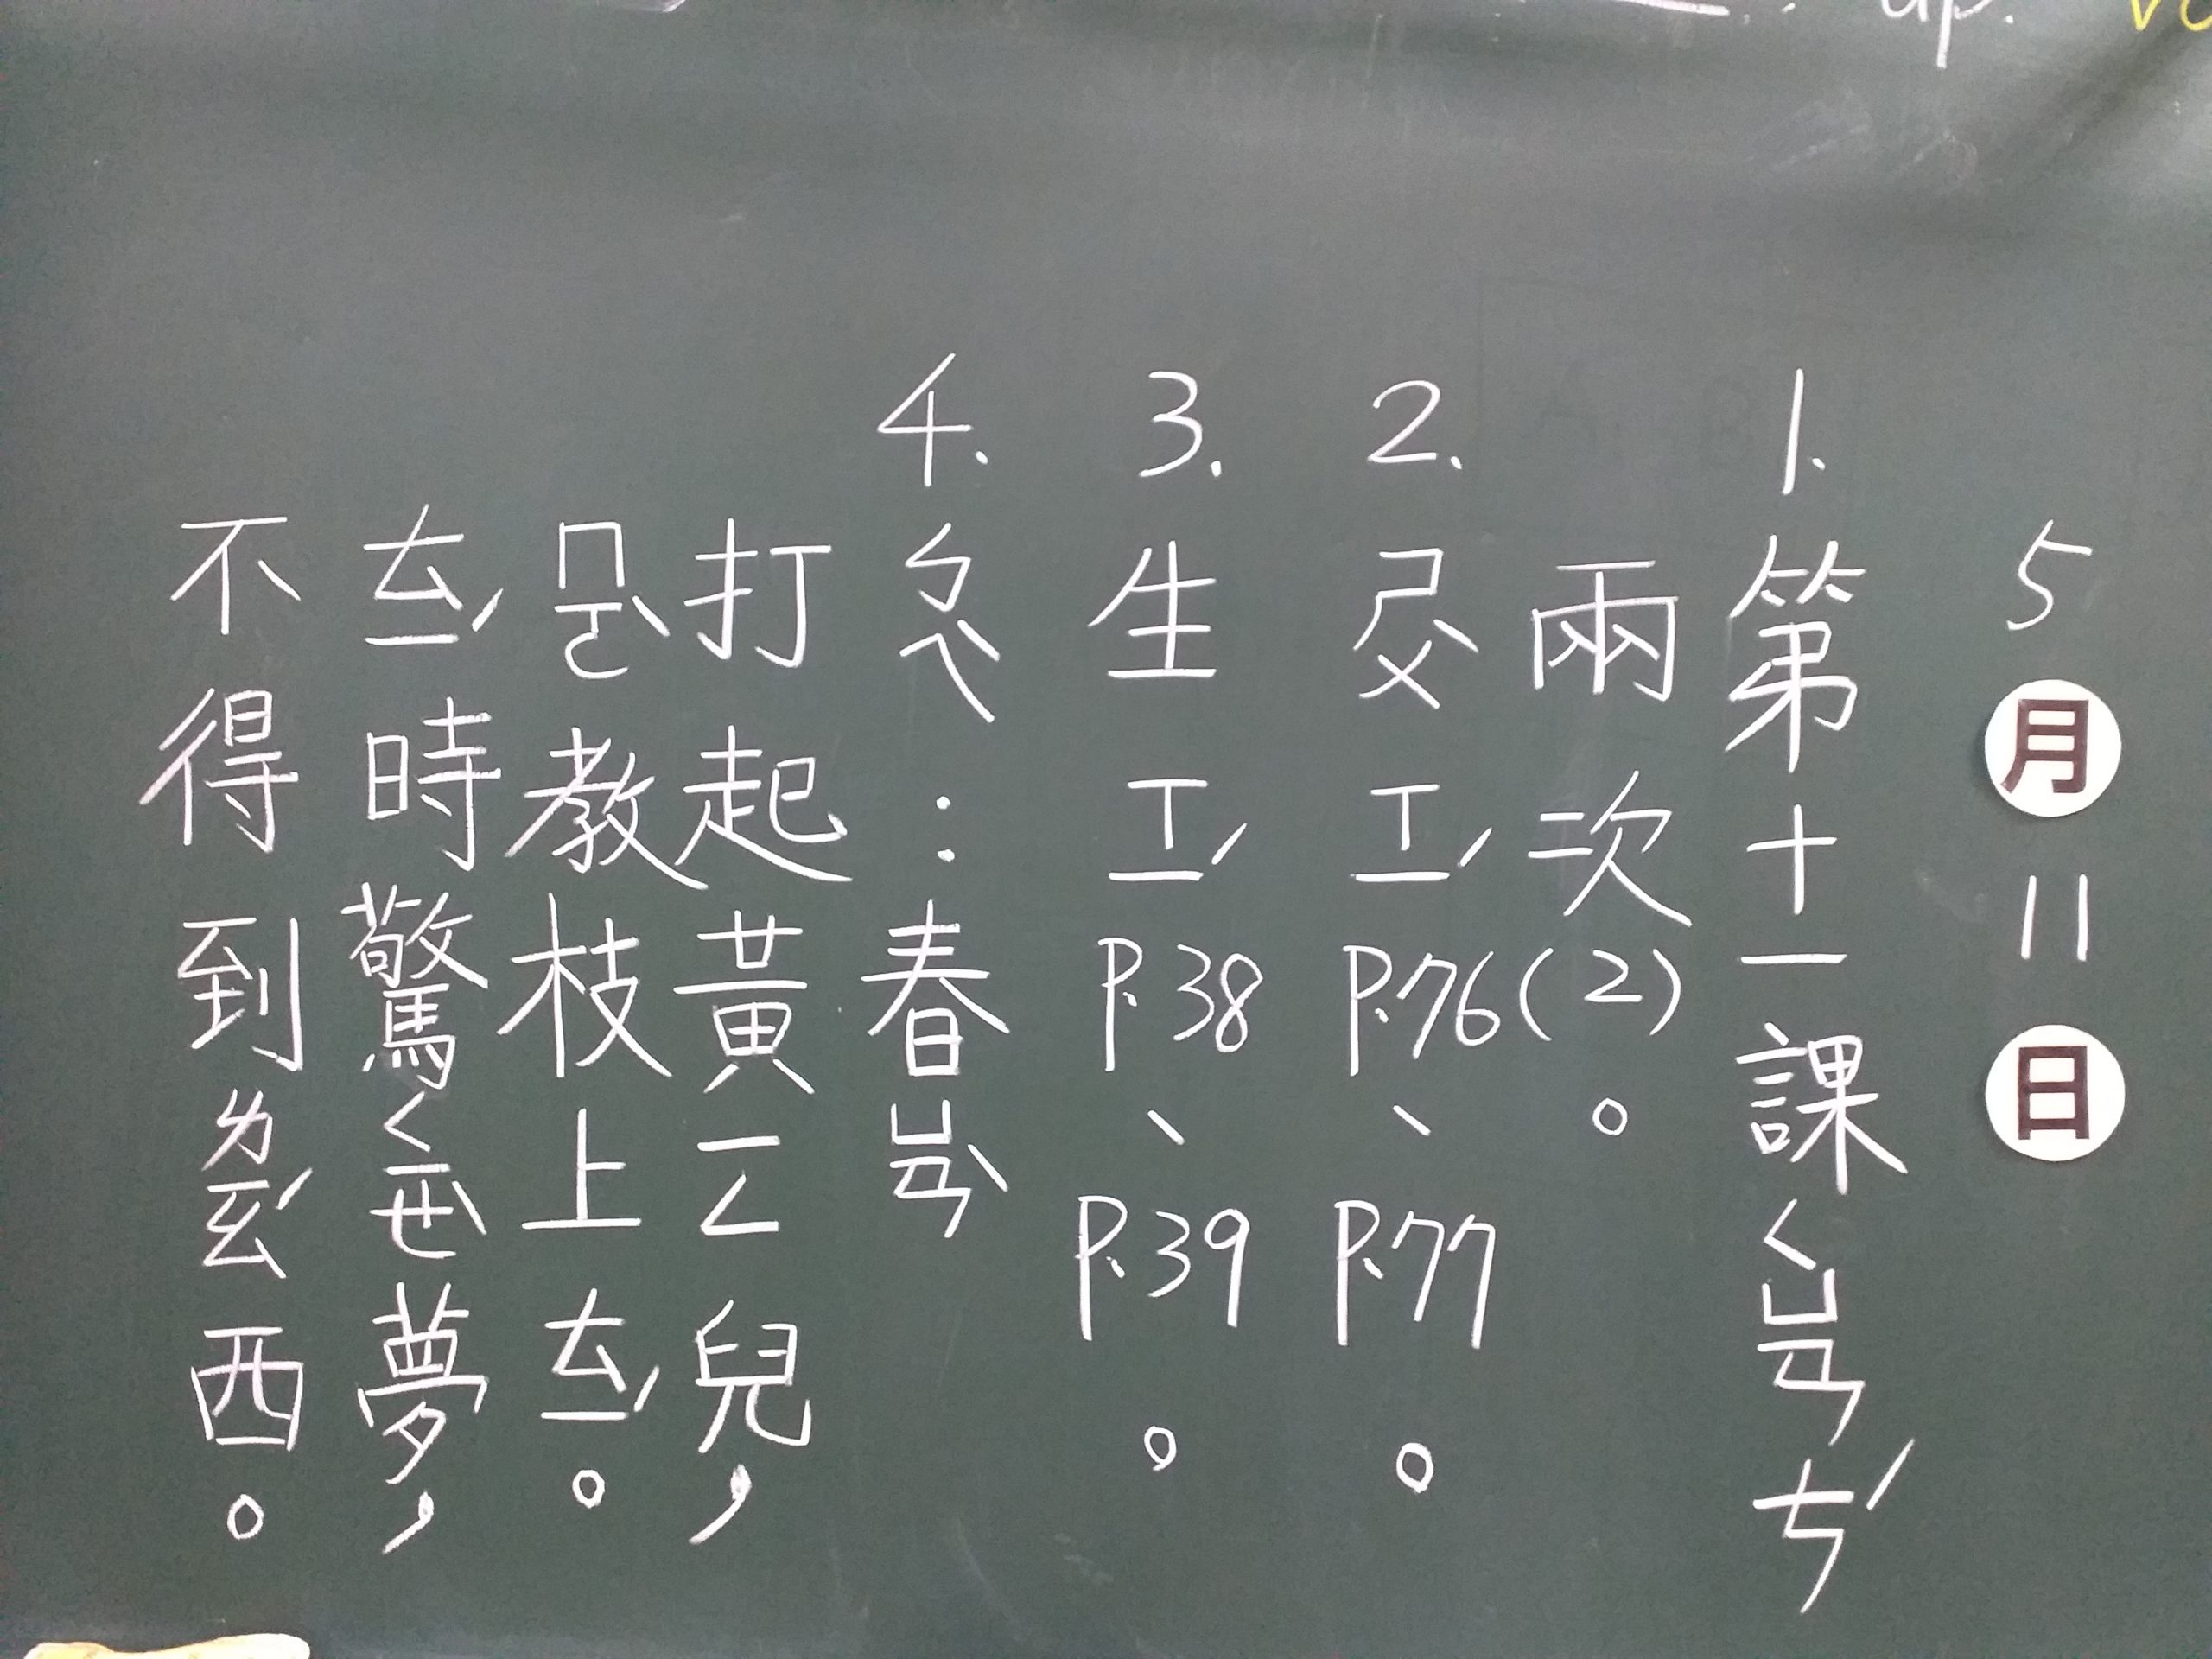 up.
5月11日
1.第十一課ㄑㄩㄢㄘˊ
兩次(2)。
2.ㄕㄨˋㄒㄧˊP.76、P.77。
3.生ㄒㄧˊP.38、P.39。
4.ㄅㄟˋ:春ㄩㄢˋ
打起黃ㄧㄥ兒,
ㄇㄛˋ教枝上ㄊㄧˊ。
ㄊㄧˊ時驚ㄑㄧㄝˋ夢,
不得到ㄌㄧㄠˊ西。